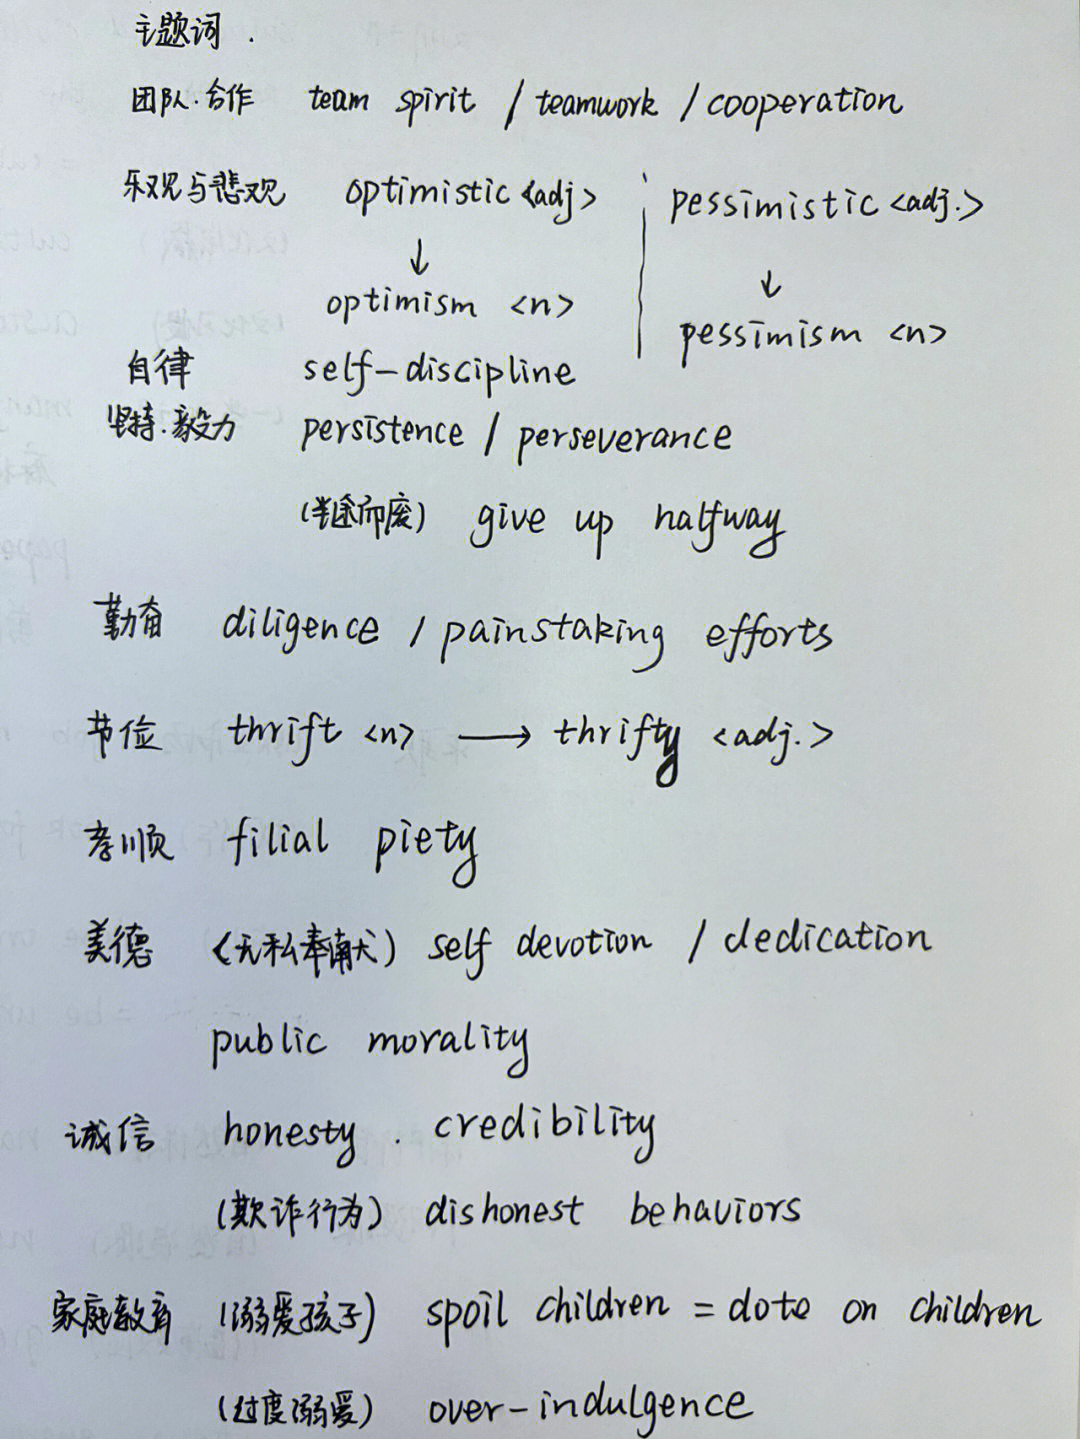 主题词.
团队.合作 team spirit / teamwork / cooperation
乐观与悲观 optimistic <adj> pessimistic <adj.>
↓ ↓
optimism <n> pessimism <n>
自律 self-discipline
坚持.毅力 persistence / perseverance
(半途而废) give up halfway
勤奋 diligence / painstaking efforts
节俭 thrift <n> → thrifty <adj.>
孝顺 filial piety
美德 (无私奉献) self devotion / dedication
public morality
诚信 honesty . credibility
(欺诈行为) dishonest behaviors
家庭教育 (溺爱孩子) spoil children = dote on children
(过度溺爱) over-indulgence